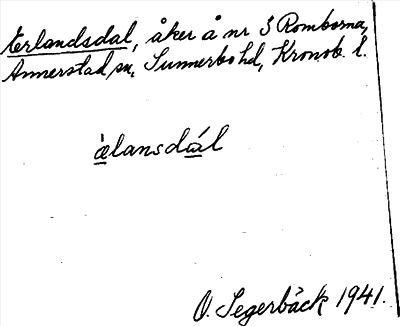 Erlandsdal, åker å nr 3 Romborna,
Annerstad sn, Sunnerbo hd, Kronob. l.
àlansdál
O. Segerbäck 1941.